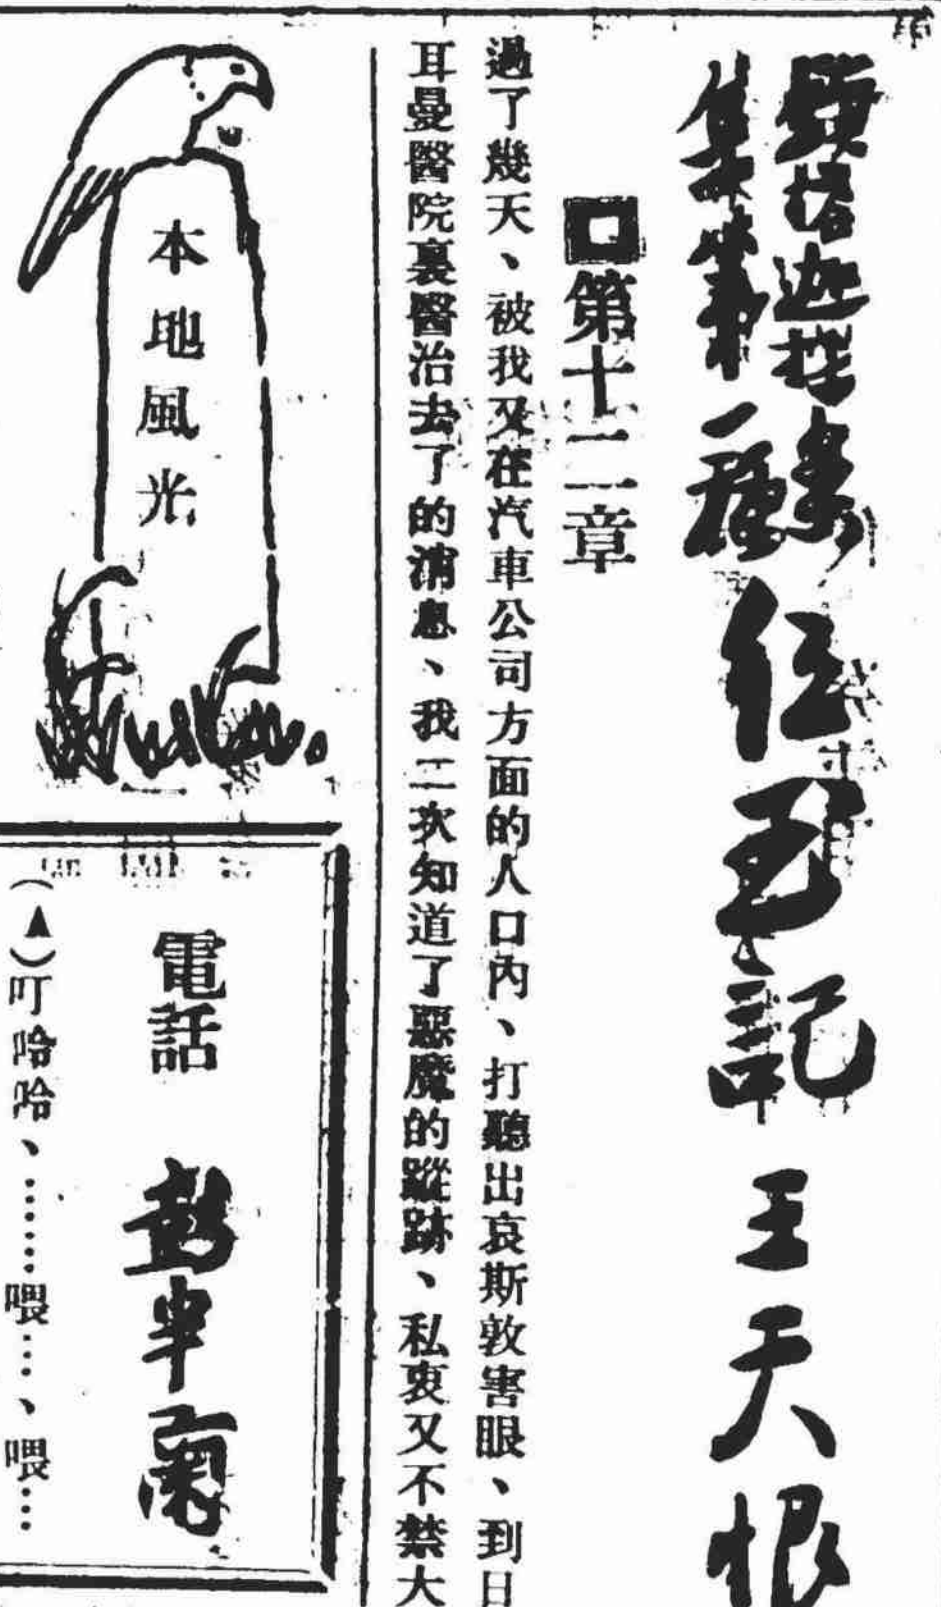 仁玉記 王天恨
第十二章
過了幾天、被我又在汽車公司方面的人口內、打聽出哀斯敦害眼、到日
耳曼醫院裏醫治去了的消息、我二次知道了惡魔的蹤跡、私衷又不禁大
本地風光
電話
(▲)叮哈哈、……喂…、喂…